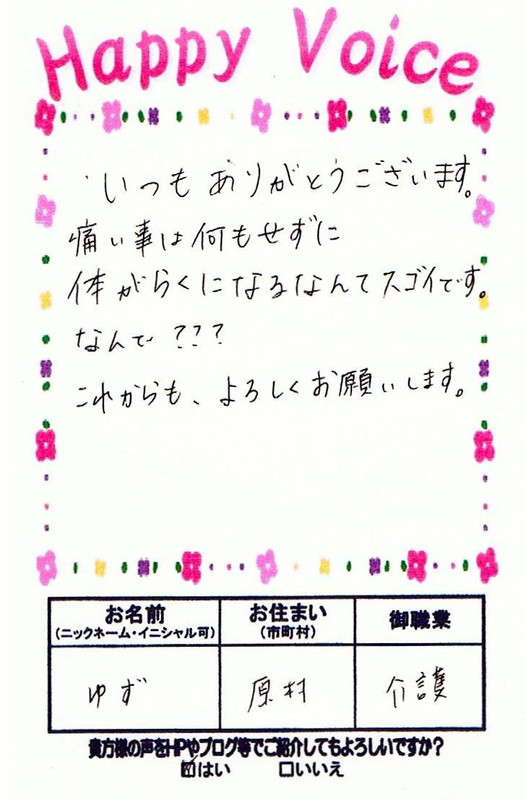 Happy Voice
いつもありがとうございます。
痛い事は何もせずに
体がらくになるなんてスゴイです。
なんで???
これからも、よろしくお願いします。
お名前 お住まい 御職業
(ニックネーム・イニシャル可) (市町村)
ゆず 原村 介護
貴方様の声をHPやブログ等でご紹介してもよろしいですか?
☑はい □いいえ